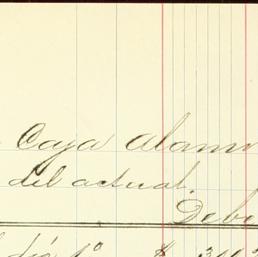 Caja Alamo
del actual.
Debe
día 1º $